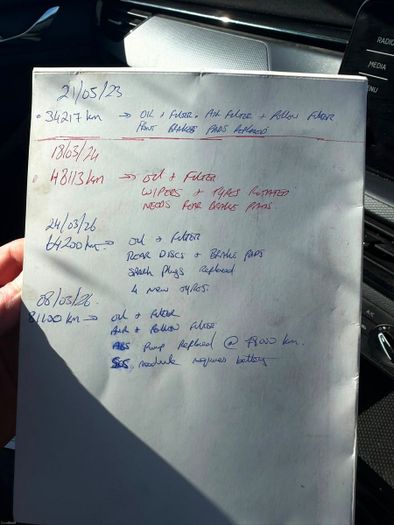 RADIO
MEDIA
MENU
21/05/23
34217 km → OIL + FILTER + AIR FILTER + POLLEN FILTER
FRONT BRAKES PADS REPLACED
18/03/24
48113 km → OIL + FILTER
WIPERS + TYRES ROTATED
NEEDS FOR BRAKE PADS.
24/03/26
64200 km → OIL + FILTER
REAR DISCS + BRAKE PADS
SPARK Plugs Replaced
4 NEW TYRES.
08/03/26
81100 km → OIL + FILTER
AIR + POLLEN FILTER
ABS Pump Replaced @ km.
SOS module requires battery
AC